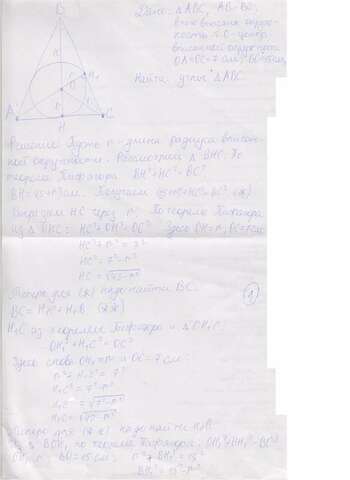 Дано: △ABC, AB=BC,
вписанная окруж-
ность, O - центр
вписанной окружности
OA=OC=7см, BO=15см
Найти: углы △ABC
B
r
H₁
O
A
H
C
Решение: Пусть r - длина радиуса вписан-
ной окружности. Рассмотрим △BHC. По
теореме Пифагора BH²+HC²=BC²
Выразим HC через r. По теореме Пифагора
из △OHC: HC²+OH²=OC². Здесь OH=r, OC=7см
HC²+r²=7²
HC²=7²-r²
HC=√7²-r²
Теперь для (*) надо найти BC.
BC=H₁C+H₁B (**)
H₁C из теоремы Пифагора и △OH₁C:
OH₁²+H₁C²=OC²
Здесь снова OH₁=r и OC=7см:
r²+H₁C²=7²
H₁C²=7²-r²
H₁C=√7²-r²
Теперь для (**) надо найти H₁B
OH₁=r, BO=15см; r²+BH₁²=15²
BH₁²=15²-r²
1